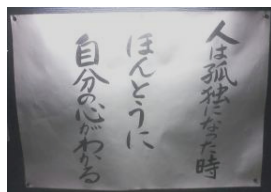 人は孤独になった時
ほんとうに
自分の心がわかる